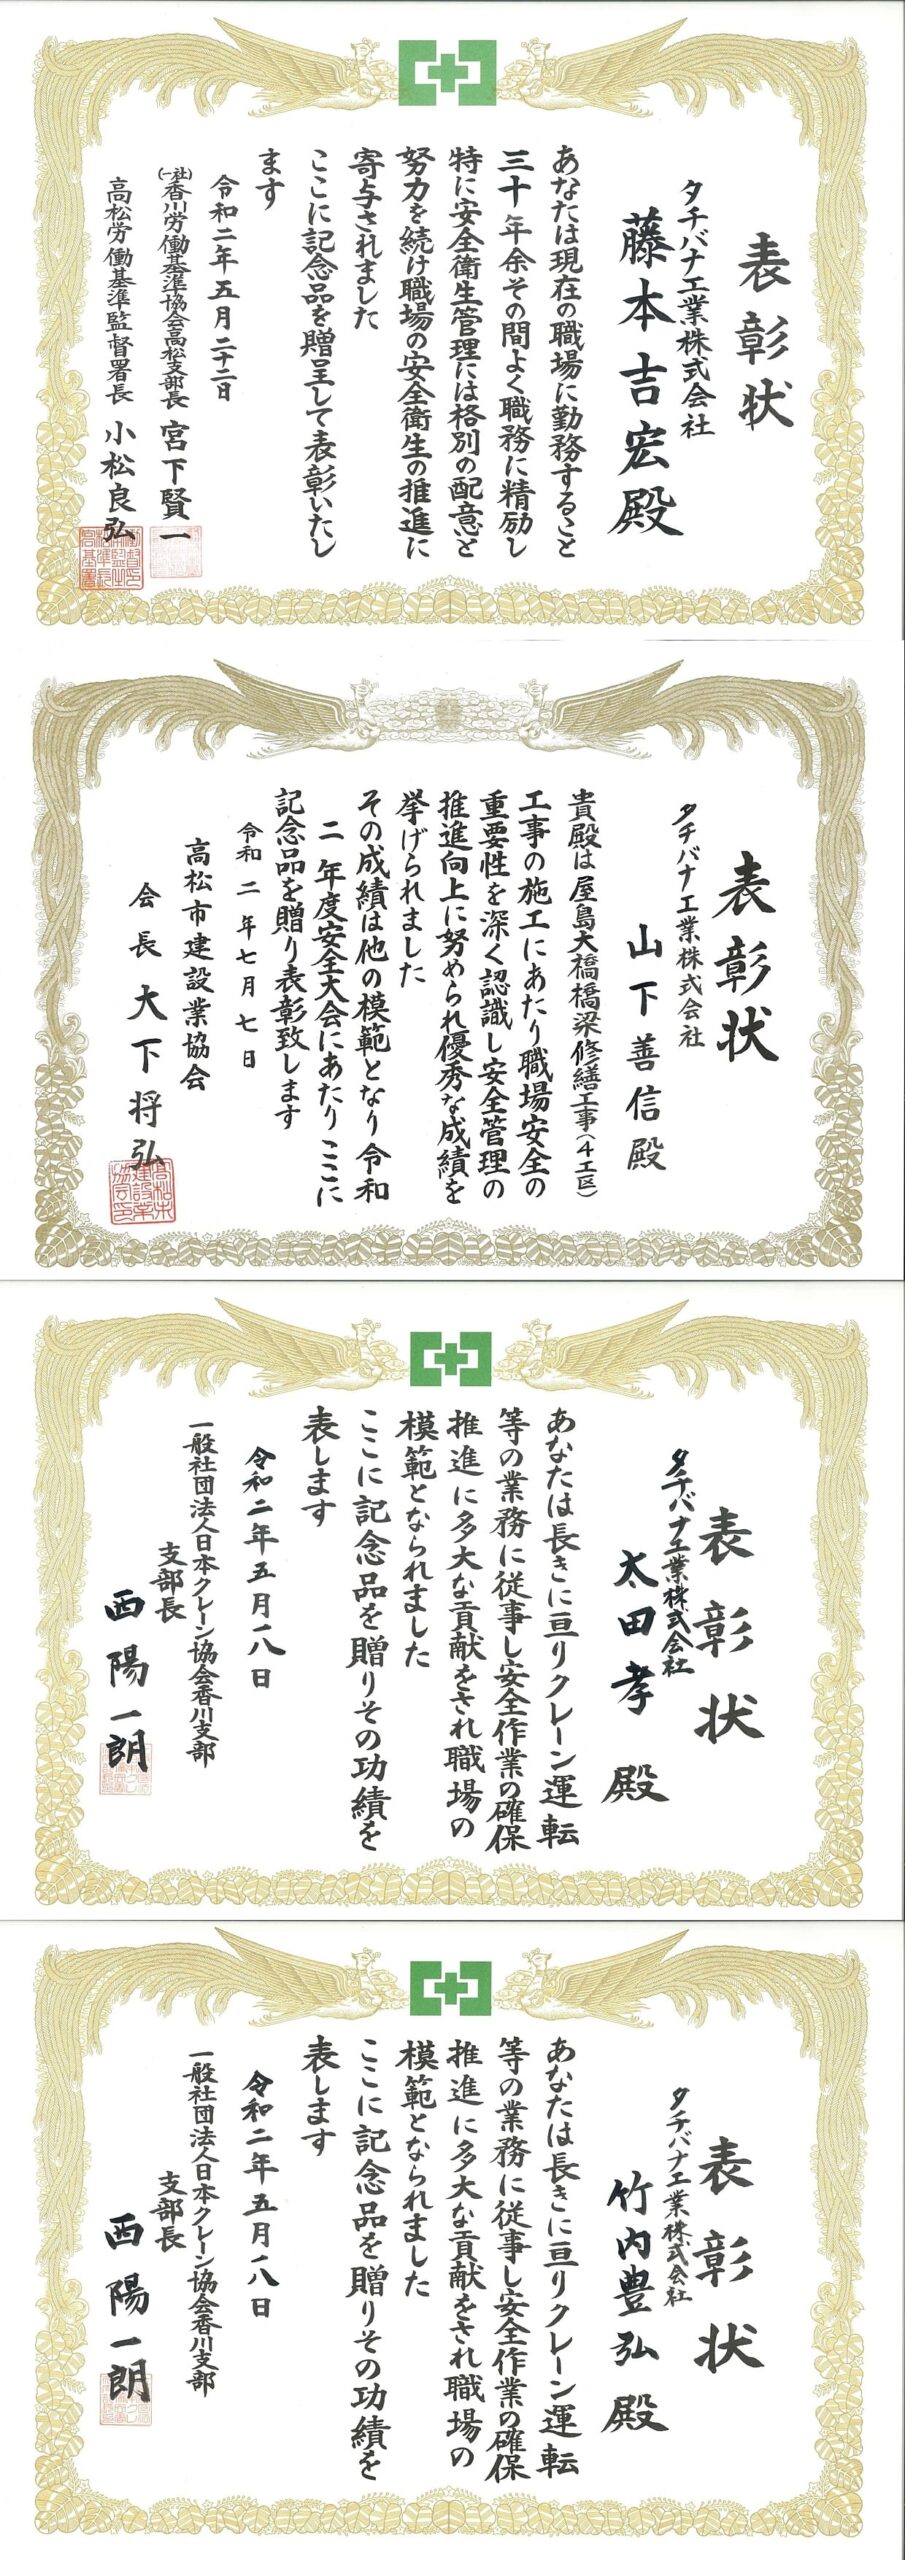 表彰状
タチバナ工業株式会社
藤本吉宏殿
あなたは現在の職場に勤務すること
三十年余その間よく職務に精励し
特に安全衛生管理には格別の配意と
努力を続け職場の安全衛生の推進に
寄与されました
ここに記念品を贈呈して表彰いたし
ます
令和二年五月二十二日
(一社)香川労働基準協会高松支部長 宮下賢一
高松労働基準監督署長 小松良弘
表彰状
タチバナ工業株式会社
山下善信殿
貴殿は屋島大橋橋梁修繕工事(4工区)
工事の施工にあたり職場安全の
重要性を深く認識し安全管理の
推進向上に努められ優秀な成績を
挙げられました
その成績は他の模範となり令和
二年度安全大会にあたりここに
記念品を贈り表彰致します
令和二年七月七日
高松市建設業協会
会長 大下将弘
高松市建設業協会印
表彰状
タチバナ工業株式会社
太田孝殿
あなたは長きに亘りクレーン運転
等の業務に従事し安全作業の確保
推進に多大な貢献をされ職場の
模範となられました
ここに記念品を贈りその功績を
表します
令和二年五月八日
一般社団法人日本クレーン協会香川支部
支部長
西陽一朗
表彰状
タチバナ工業株式会社
竹内豊弘殿
あなたは長きに亘りクレーン運転
等の業務に従事し安全作業の確保
推進に多大な貢献をされ職場の
模範となられました
ここに記念品を贈りその功績を
表します
令和二年五月八日
一般社団法人日本クレーン協会香川支部
支部長
西陽一朗